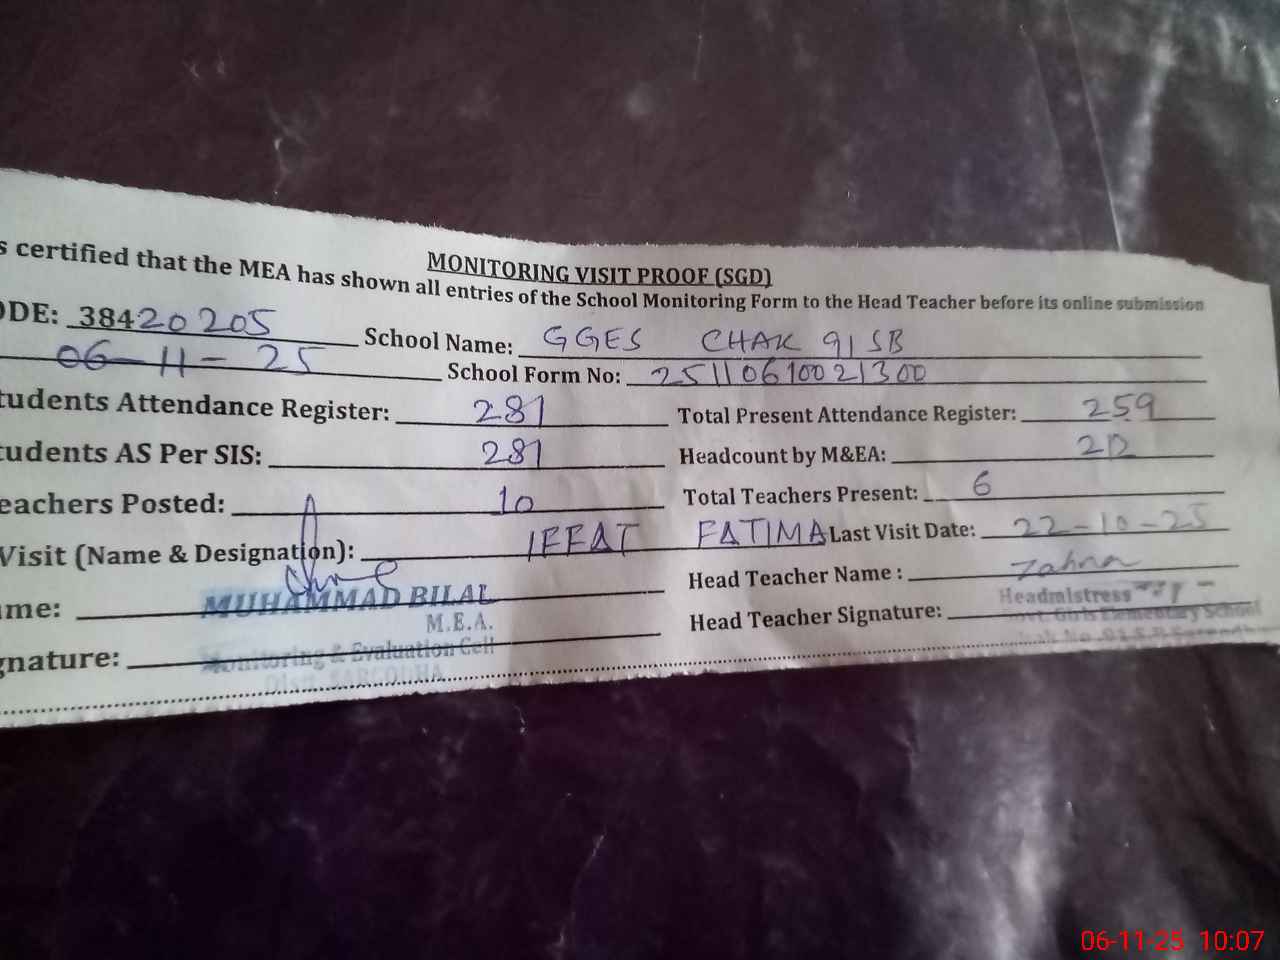 MONITORING VISIT PROOF (SGD)
s certified that the MEA has shown all entries of the School Monitoring Form to the Head Teacher before its online submission
ODE: 38420205 School Name: GGES CHAK 91 SB
06-11-25 School Form No: 2511061002 1300
tudents Attendance Register: 281 Total Present Attendance Register: 259
tudents AS Per SIS: 281 Headcount by M&EA:
eachers Posted: 10 Total Teachers Present: 6
Visit (Name & Designation): IFFAT FATIMA Last Visit Date: 22-10-25
me: MUHAMMAD BILAL Head Teacher Name : Zahra
M.E.A. Headmistress
gnature: Monitoring & Evaluation Cell Head Teacher Signature: Govt. Girls Elementary School
Distt. SARGODHA
06-11-25 10:07